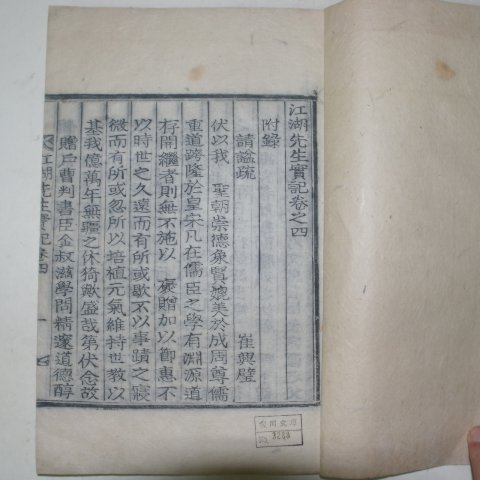 江湖先生實記卷之四
附錄
請諡疏
崔興璧
伏以我 聖朝崇德象賢媲美於成周尊儒
重道跨隆於皇宋凡在儒臣之學有淵源道
存開繼者則無不施以 褒贈加以節惠不
以時世之久遠而有所或歇不以事蹟之之寢
微而有所或忽所以培植元氣維持世教以
基我億萬年無疆之休猗歟盛哉第伏念故
贈戶曹判書臣金叔滋學問精邃道德醇
江湖先生實記卷四
一
3288